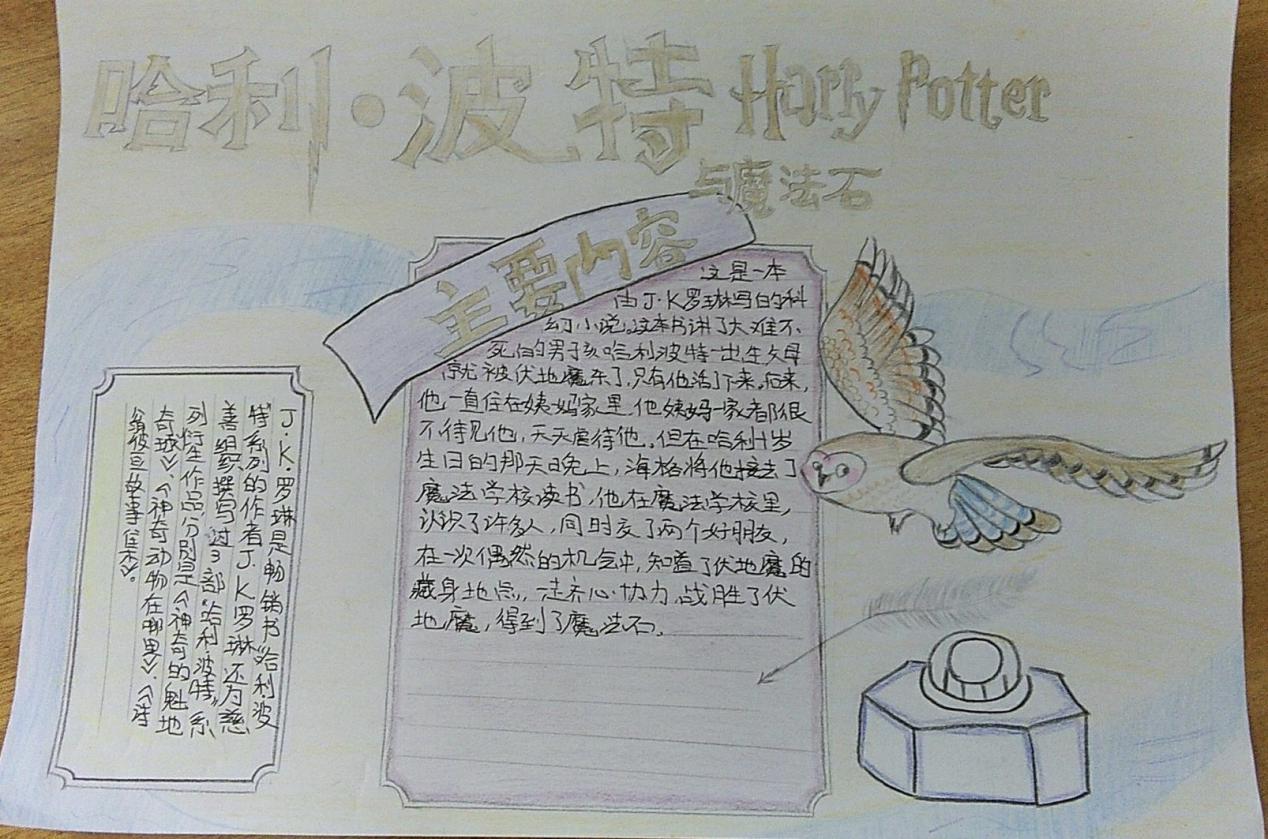 哈利·波特 Harry Potter
与魔法石
主要内容
这是一本
由J·K罗琳写的科
幻小说。这本书讲了大难不
死的男孩哈利波特一出生父母
就被伏地魔杀了,只有他活了下来。后来,
他一直住在姨妈家里,他姨妈一家都很
不待见他,天天虐待他。但在哈利十岁
生日的那天晚上,海格将他接去了
魔法学校读书,他在魔法学校里,
认识了许多人,同时交了两个好朋友,
在一次偶然的机会中,知道了伏地魔的
藏身地点,齐心协力,战胜了伏
地魔,得到了魔法石。
J·K·罗琳是畅销书“哈利·波
特”系列的作者J·K罗琳还为慈
善组织撰写过3部“哈利·波特”系
列衍生作品分别是《神奇的魁地
奇球》、《神奇动物在哪里》、《诗
翁彼豆故事集》。